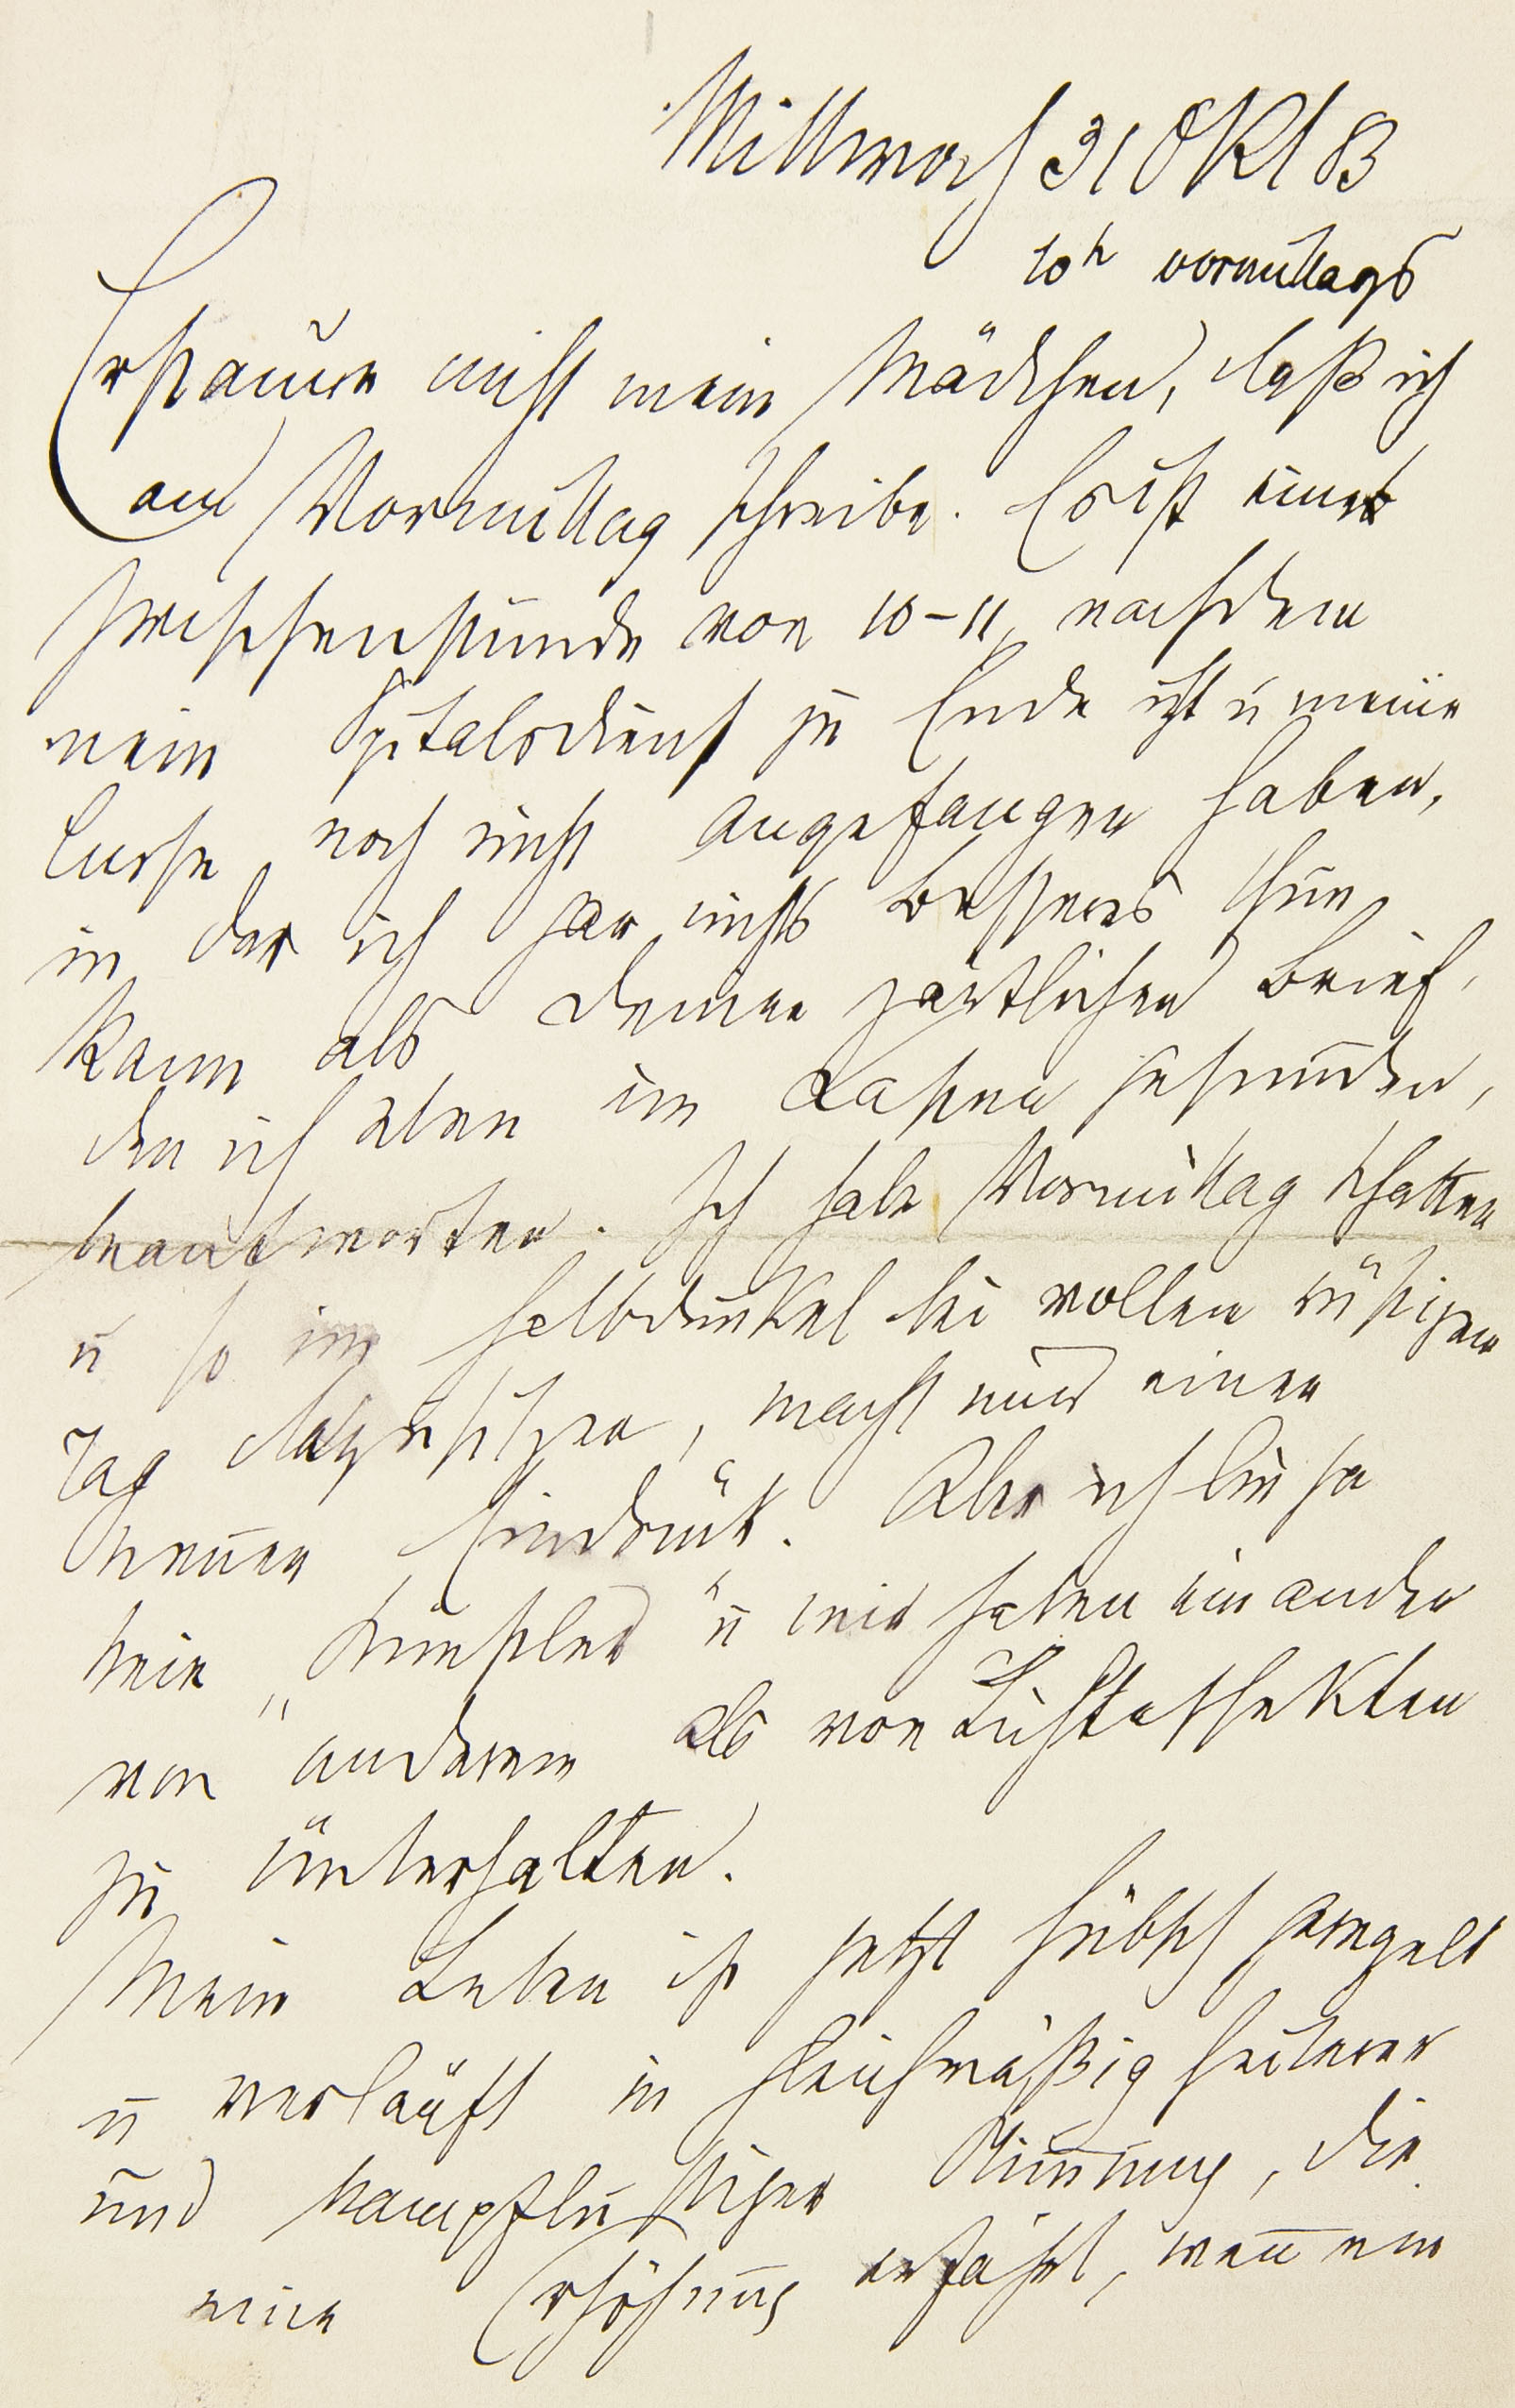 Mittwoch 31 Okt 83
10h vormittags
Erstaune nicht mein Mädchen, daß ich
am Vormittag schreibe. Es ist eine
Zwischenstunde von 10–11, nachdem
mein Spitalsdienst zu Ende ist u meine
Curse noch nicht angefangen haben,
in der ich gar nichts besseres thun
kann als Deinen zärtlichen Brief,
den ich eben im Kasten gefunden,
beantworten. Ich habe Vormittag Schatten
u so im Halbdunkel bei vollem
Tag dazusitzen, macht mir einen
neuen Eindruck. Aber ich bin ja
kein „Künstler“ u wir haben einander
von anderem als von Lichteffekten
zu unterhalten.
Mein Leben ist jetzt hübsch geregelt
u verläuft in gleichmäßig heiterer
und kampflustiger Stimmung, die
eine Erhöhung erfährt, wenn ein